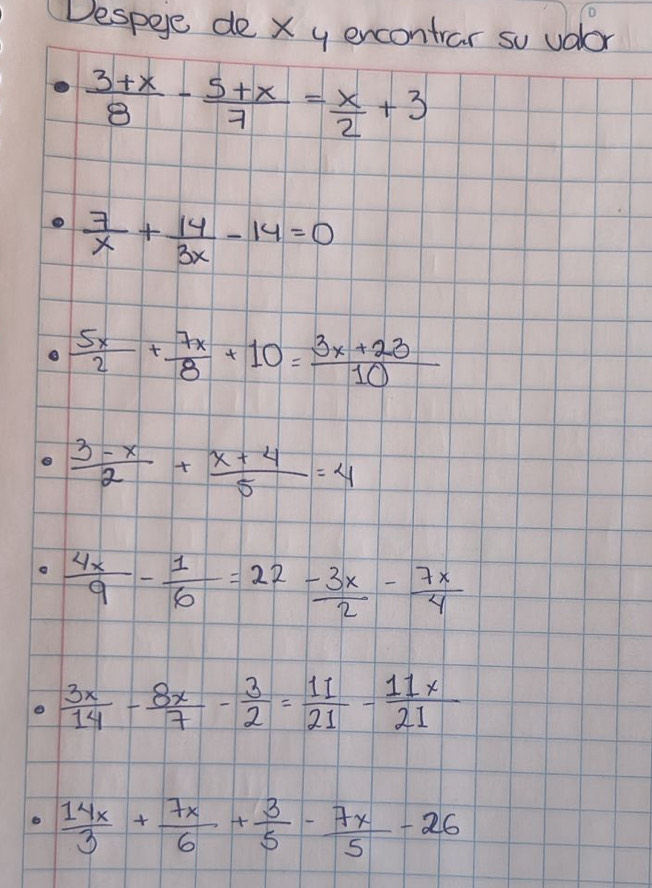 Despeje de x y encontrar su valor
• \frac{3+x}{8} - \frac{5+x}{7} = \frac{x}{2} + 3
• \frac{7}{x} + \frac{14}{3x} - 14 = 0
• \frac{5x}{2} + \frac{7x}{8} + 10 = \frac{3x+23}{10}
• \frac{3-x}{2} + \frac{x+4}{5} = 4
• \frac{4x}{9} - \frac{1}{6} = 22 - \frac{3x}{2} - \frac{7x}{4}
• \frac{3x}{14} - \frac{8x}{7} - \frac{3}{2} = \frac{11}{21} - \frac{11x}{21}
• \frac{14x}{3} + \frac{7x}{6} + \frac{3}{5} - \frac{7x}{5} - 26